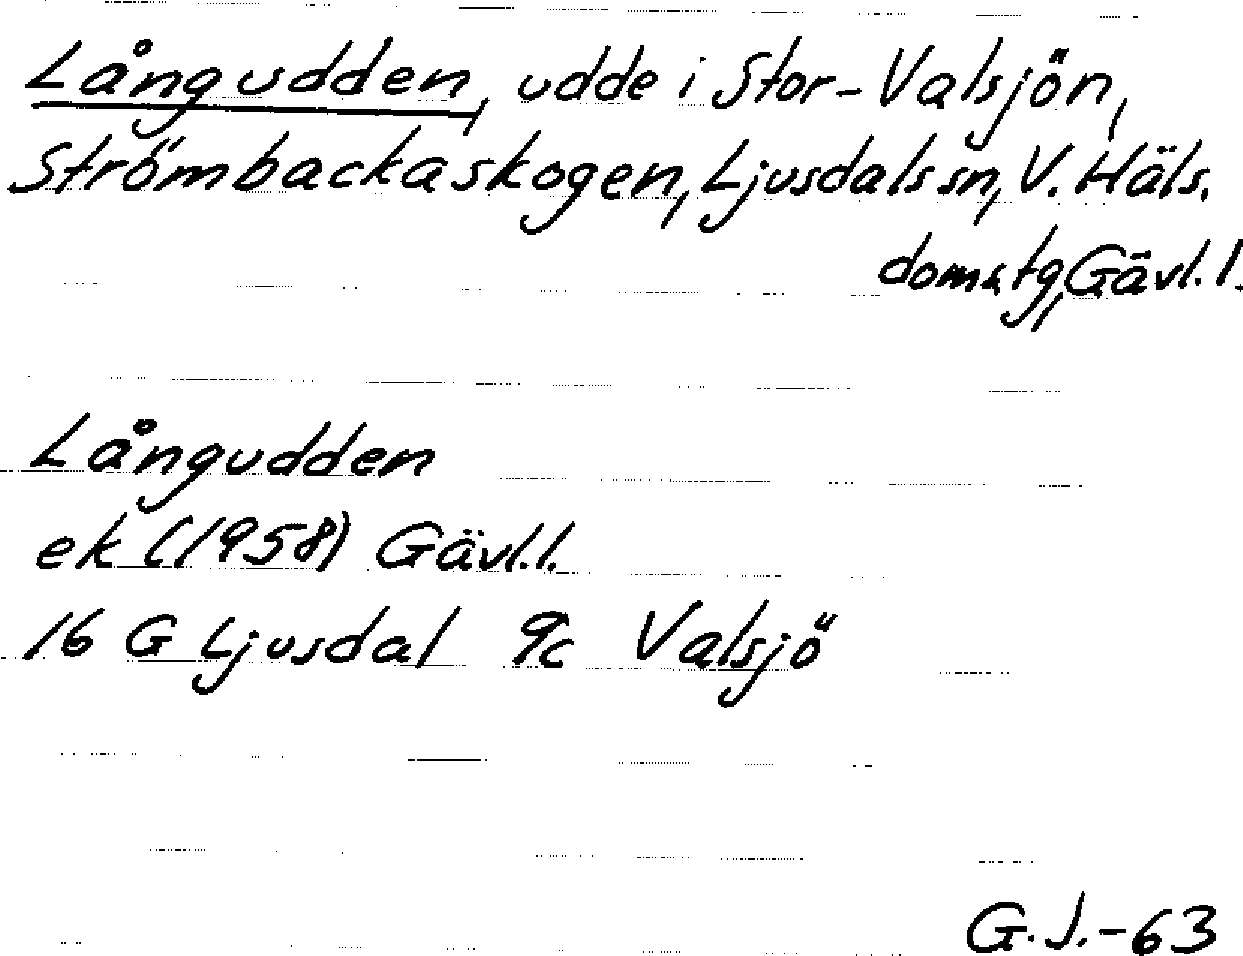 Långudden, udde i Stor-Valsjön,
Strömbackaskogen, Ljusdals sn, V. Häls.
doms.tg, Gävl.l.
Långudden
ek (1958) Gävl.l.
16 G Ljusdal 9c Valsjö
G.J.-63